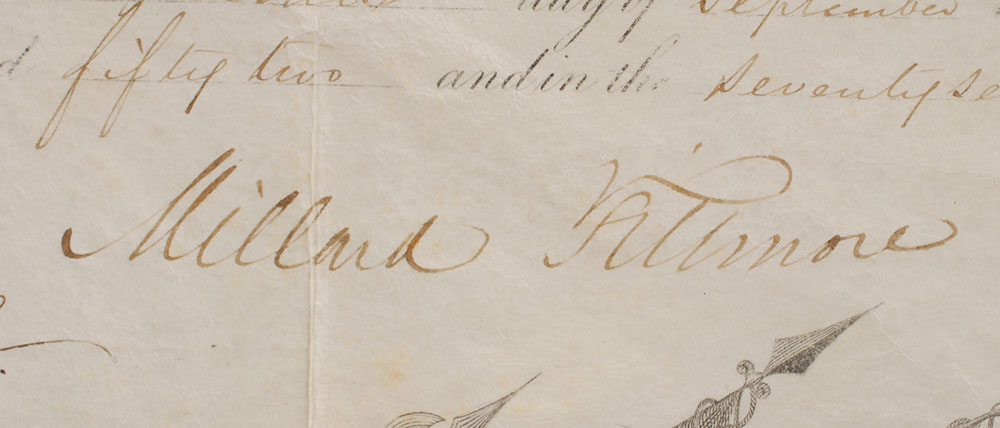 day of September
fifty two and in the seventy se
Millard Fillmore